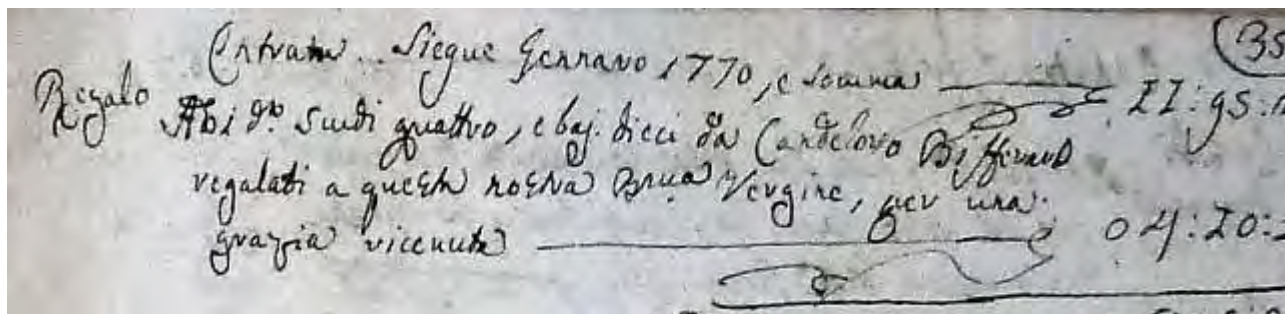 Entrata .. Siegue Gennaro 1770, e somma 22:95:
Regalo A di do. Scudi quattro, e baj. dieci da Candeloro Bifferaro
regalati a questa nostra Bma Vergine, per una
grazia ricenuta 04:20: